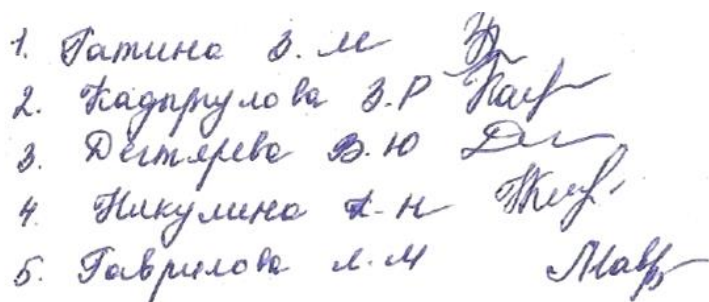 1. Гатина З. М
2. Кадырулова З. Р
3. Дегтярева В. Ю
4. Никулина Н
5. Гаврилова Л. М